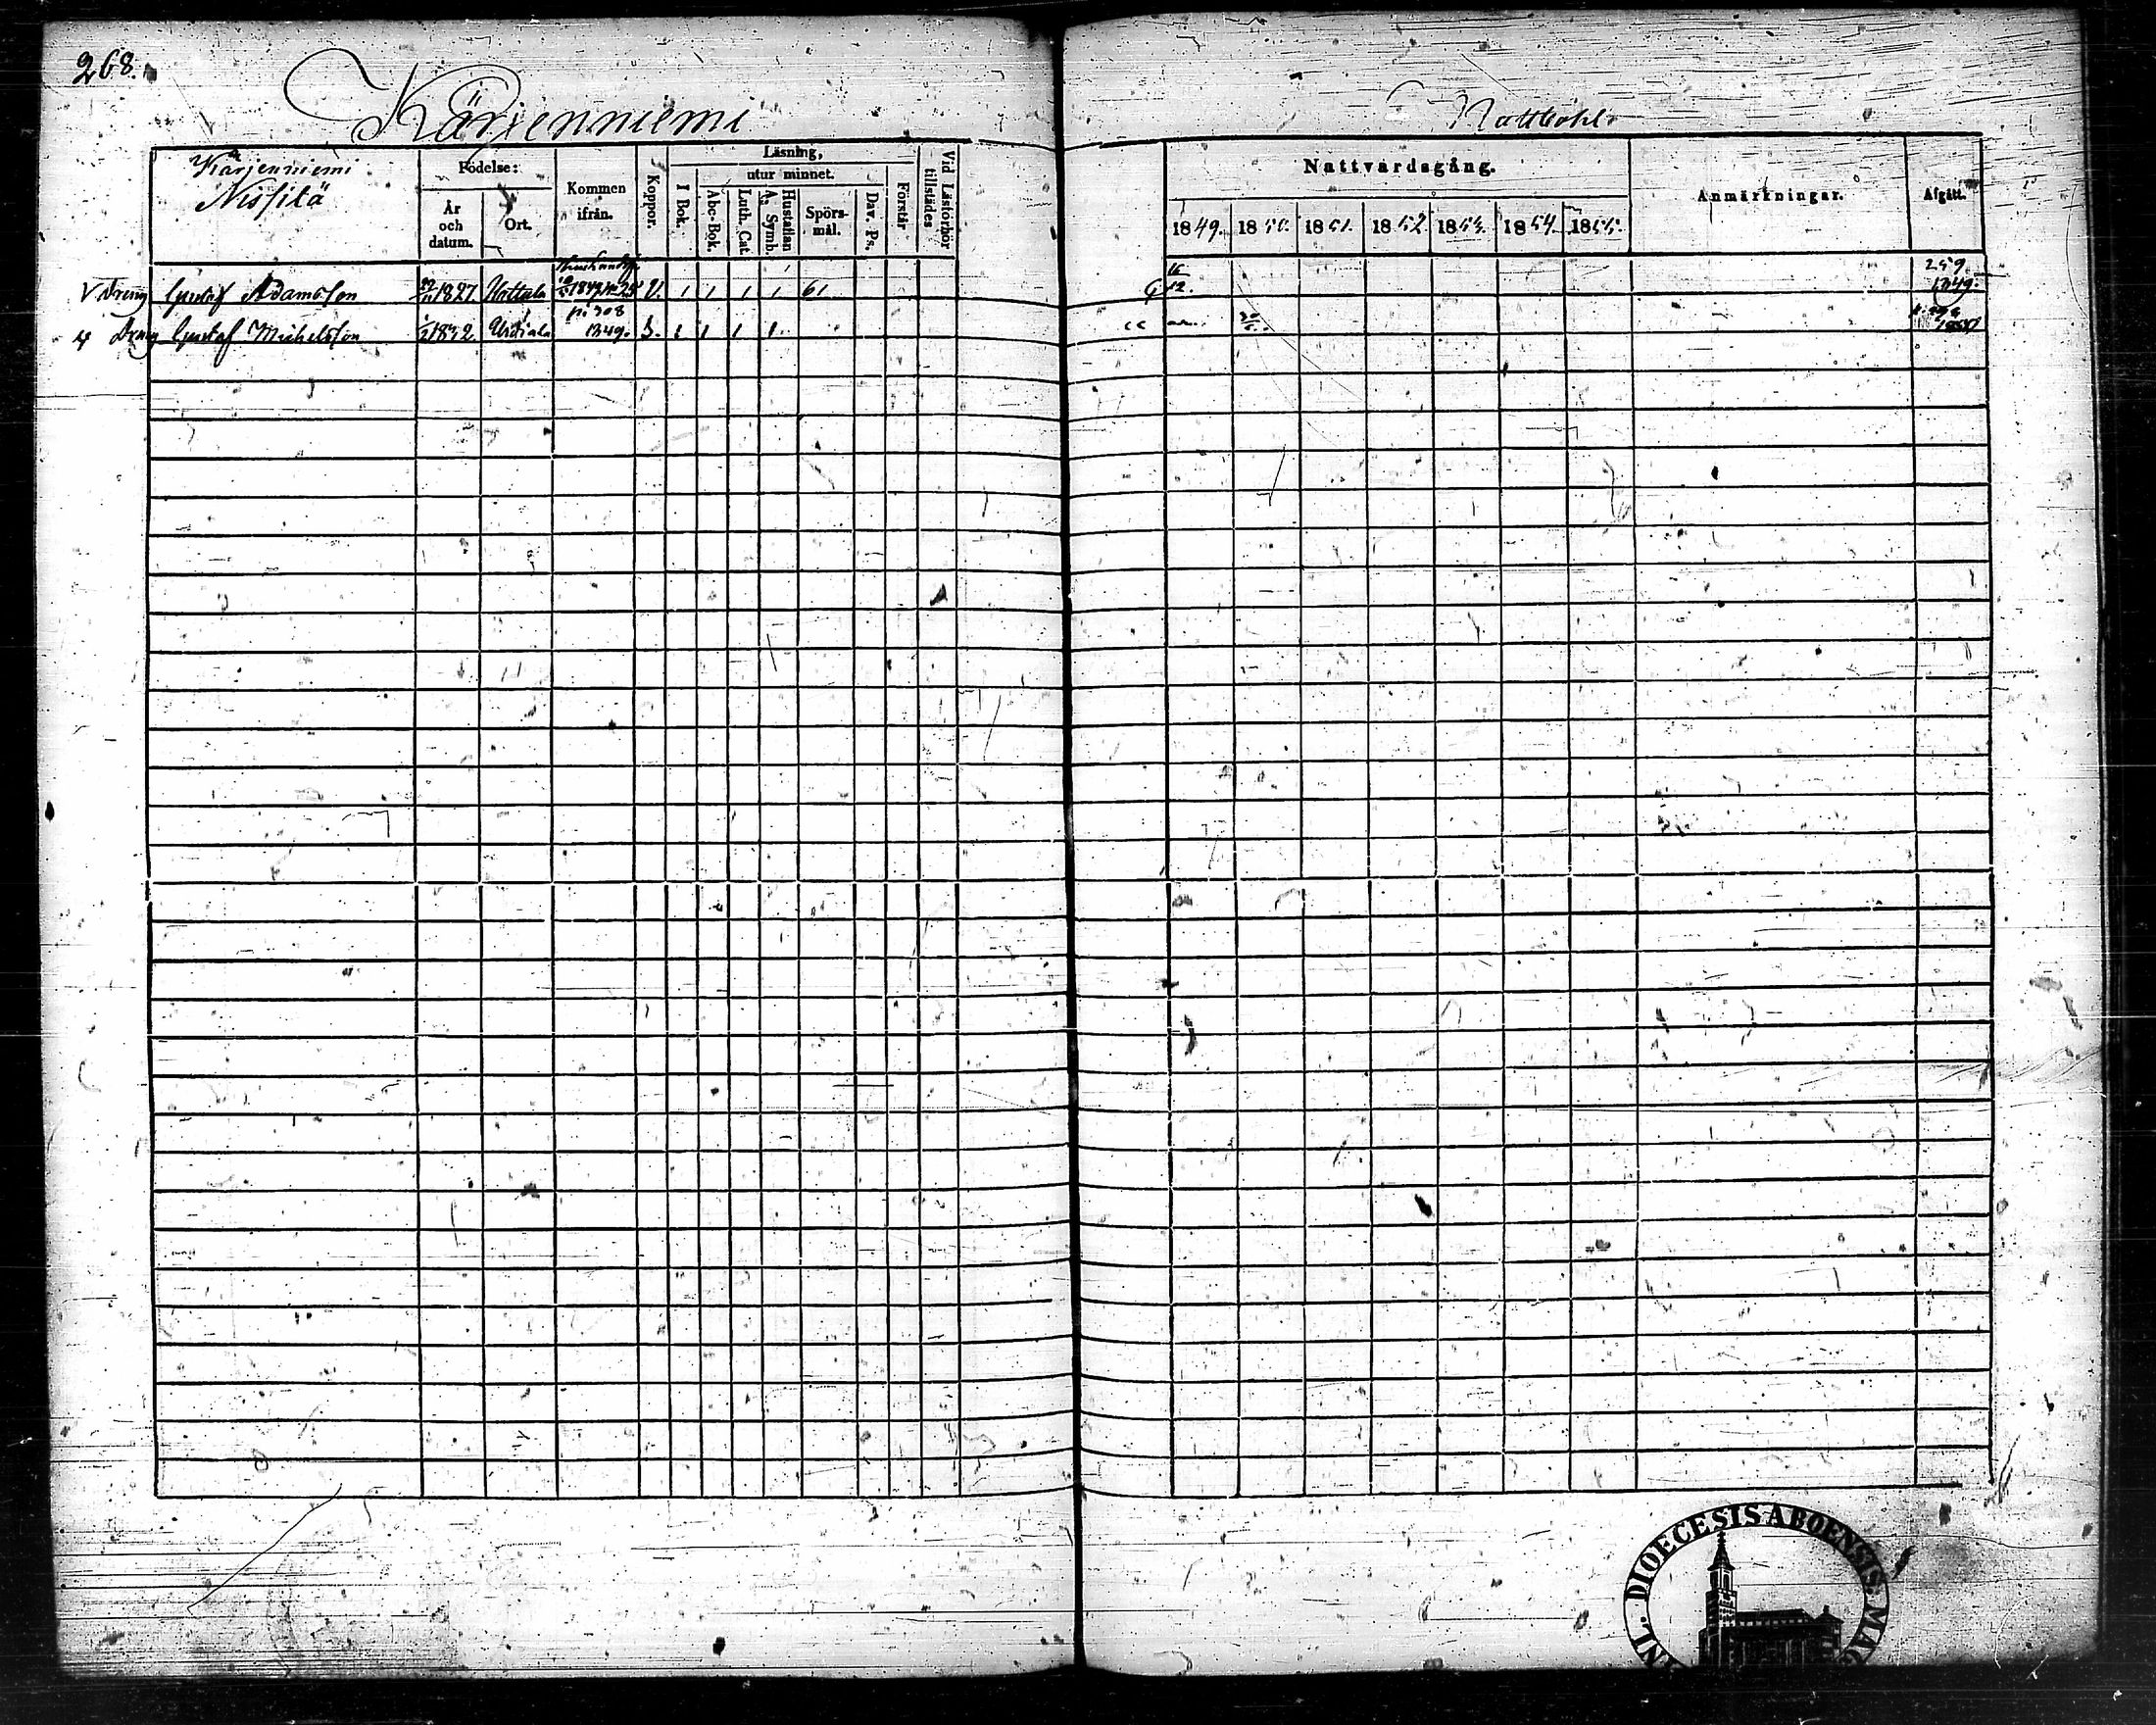 268.
Kärjenniemi
Kärjenniemi
Nissilä
Födelse:
År och datum.
Ort.
Kommen ifrån.
Koppor.
Läsning,
utur minnet.
I Bok.
Abc-Bok.
Luth. Cat.
Hustaflan A. Symb.
Spörs-mål.
Dav. Ps.
Förstår
Vid Läsförhör tillstädes
Nattvardsgång.
1849. 1850. 1851. 1852. 1853. 1854. 1855.
Anmärkningar.
Afgått.
V Dreng Gustaf Adamsson 1827 V. 1 1 1 1 61 G 12. 259 1849.
4 Dreng Gustaf Michelsson 1832 Urdiala 1849. S. 1 1 1 1
DIOECESIS ABOENSIS MAG